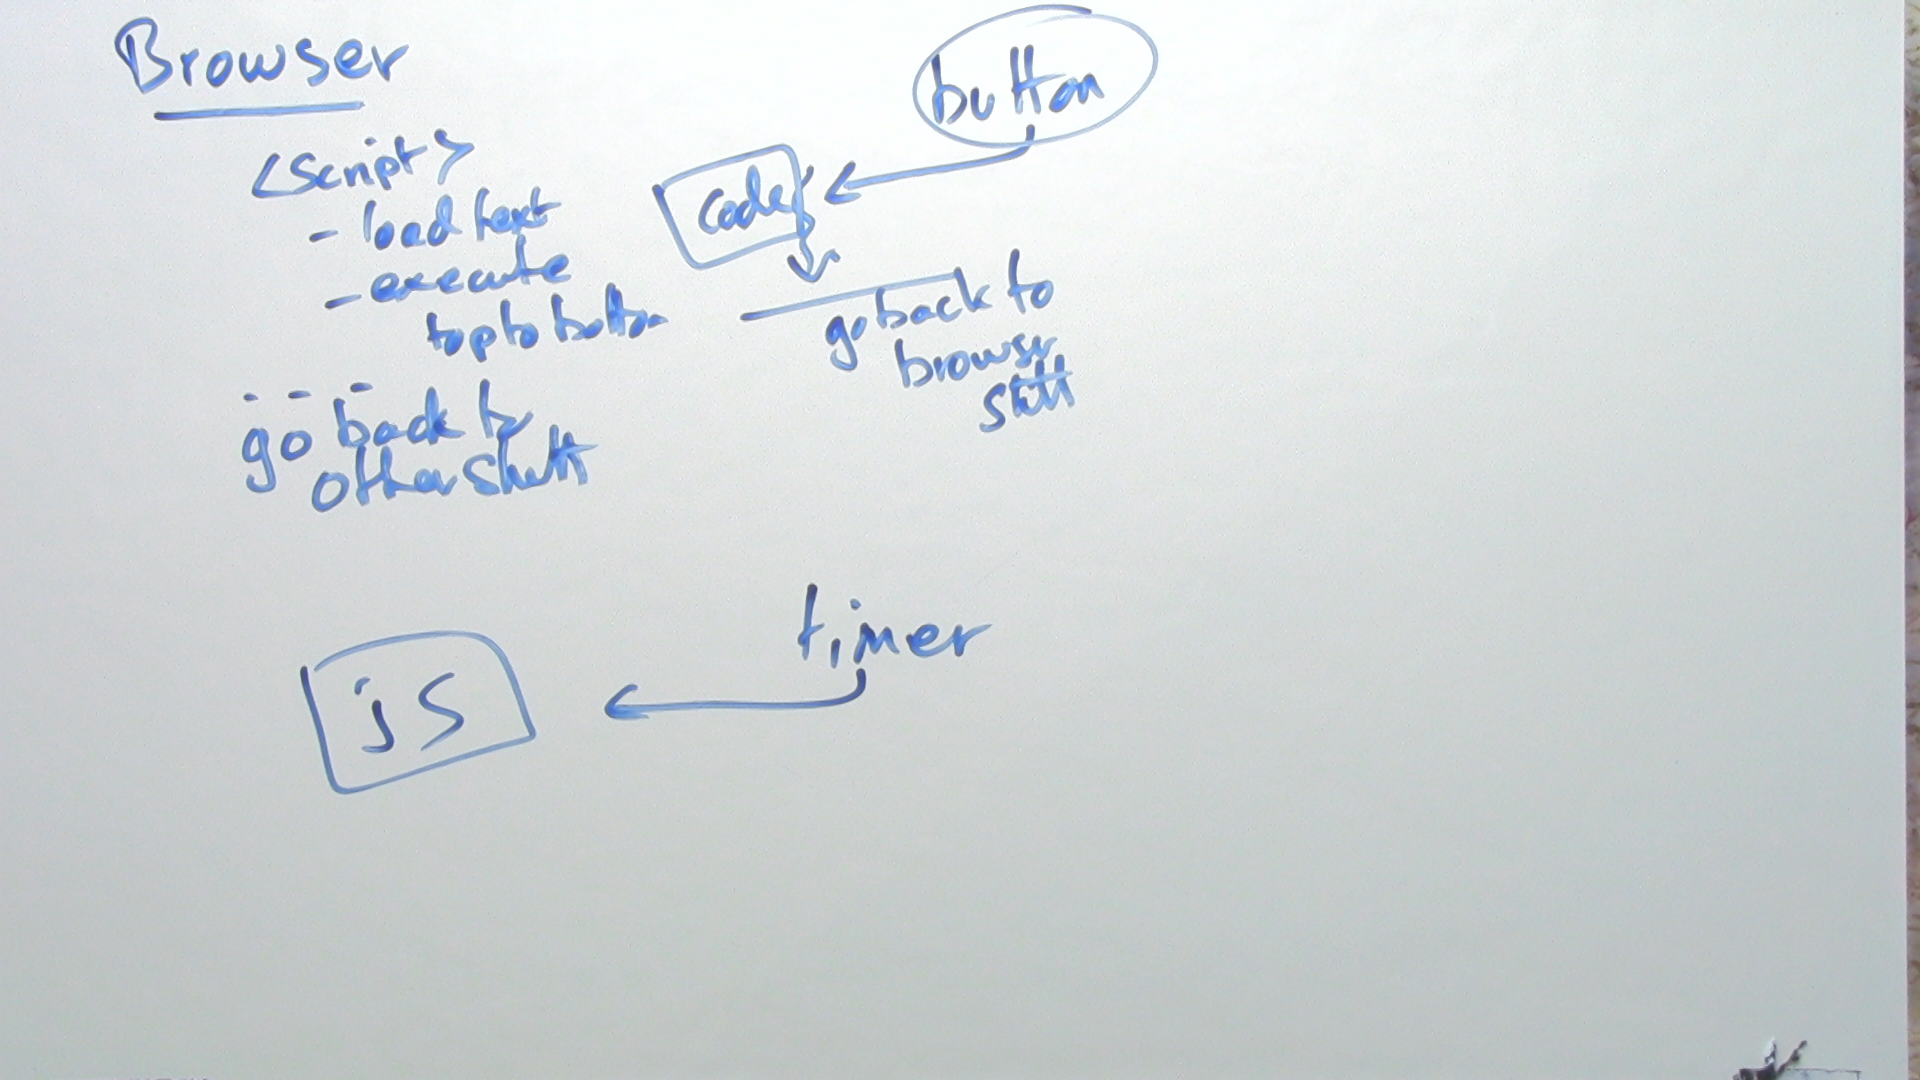 Browser
<script>
- load text
- execute
top to bottom
- - -
go back to
other stuff
button
code
go back to
browser
stuff
timer
js